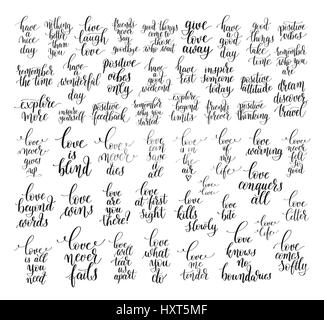 have
a nice
day
nothing
better
than
you
live
laugh
love
friends
never
say
goodbye
good things
come to
those
who wait
give
love
away
have
a
good
day
good
things
take
time
positive
vibes
remember
why
you
are
remember
the time
have
a
wonderful
day
positive
vibes
only
have
a good
weekend
have
a
good
time
inspire
someone
today
positive
attitude
dream
discover
travel
explore
more
inspire
yourself
positive
feedback
remember
why you
started
explore
beyond
limits
friends
forever
positive
thinking
love
never
gives
up
love
is
blind
love
never
dies
love
can
save
us
all
love
is in
the
air
love
of
my
life
love
warning
love
never
felt
so
good
love
love
love
love
conquers
all
love
beyond
words
love
wins
love
are
you
there?
love
at first
sight
love
kills
slowly
love
bite
love
of my
life
love
letter
love
is all
you
need
love
never
fails
love
will
tear
us
apart
love
what
you
do
love
me
tender
love
knows
no
boundaries
love
comes
softly
alamy
Image ID: HXT5MF
www.alamy.com